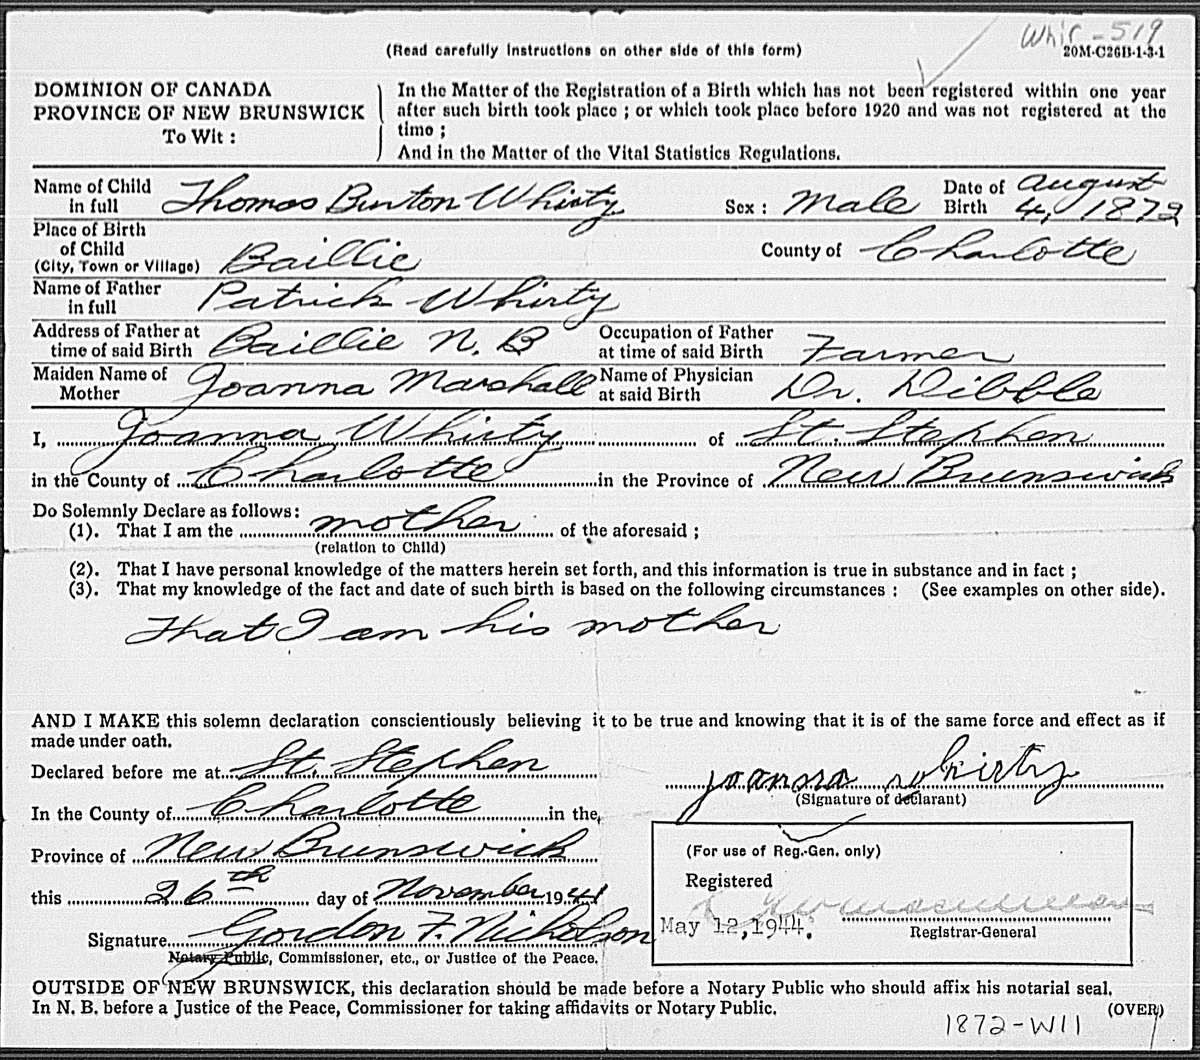 Whir - 519
(Read carefully Instructions on other side of this form)
20M-C26B-1-3-1
DOMINION OF CANADA
PROVINCE OF NEW BRUNSWICK
To Wit :
In the Matter of the Registration of a Birth which has not been registered within one year
after such birth took place ; or which took place before 1920 and was not registered at the
time ;
And in the Matter of the Vital Statistics Regulations.
Name of Child in full Thomas Burton Whirty Sex : Male Date of Birth August 4, 1872
Place of Birth of Child (City, Town or Village) Baillie County of Charlotte
Name of Father in full Patrick Whirty
Address of Father at time of said Birth Baillie N. B Occupation of Father at time of said Birth Farmer
Maiden Name of Mother Joanna Marshall Name of Physician at said Birth Dr. Dibble
I, Joanna Whirty of St. Stephen
in the County of Charlotte in the Province of New Brunswick
Do Solemnly Declare as follows:
(1). That I am the mother of the aforesaid ;
(relation to Child)
(2). That I have personal knowledge of the matters herein set forth, and this information is true in substance and in fact ;
(3). That my knowledge of the fact and date of such birth is based on the following circumstances : (See examples on other side).
That I am his mother
AND I MAKE this solemn declaration conscientiously believing it to be true and knowing that it is of the same force and effect as if
made under oath.
Declared before me at St. Stephen
Joanna Whirty
(Signature of declarant)
In the County of Charlotte in the
Province of New Brunswick
this 26th day of November 1941
Signature Gordon F. Nicholson
Notary Public, Commissioner, etc., or Justice of the Peace.
(For use of Reg.-Gen. only)
Registered
May 12, 1944.
Registrar-General
OUTSIDE OF NEW BRUNSWICK, this declaration should be made before a Notary Public who should affix his notarial seal.
In N. B. before a Justice of the Peace, Commissioner for taking affidavits or Notary Public.
(OVER)
1872-W11